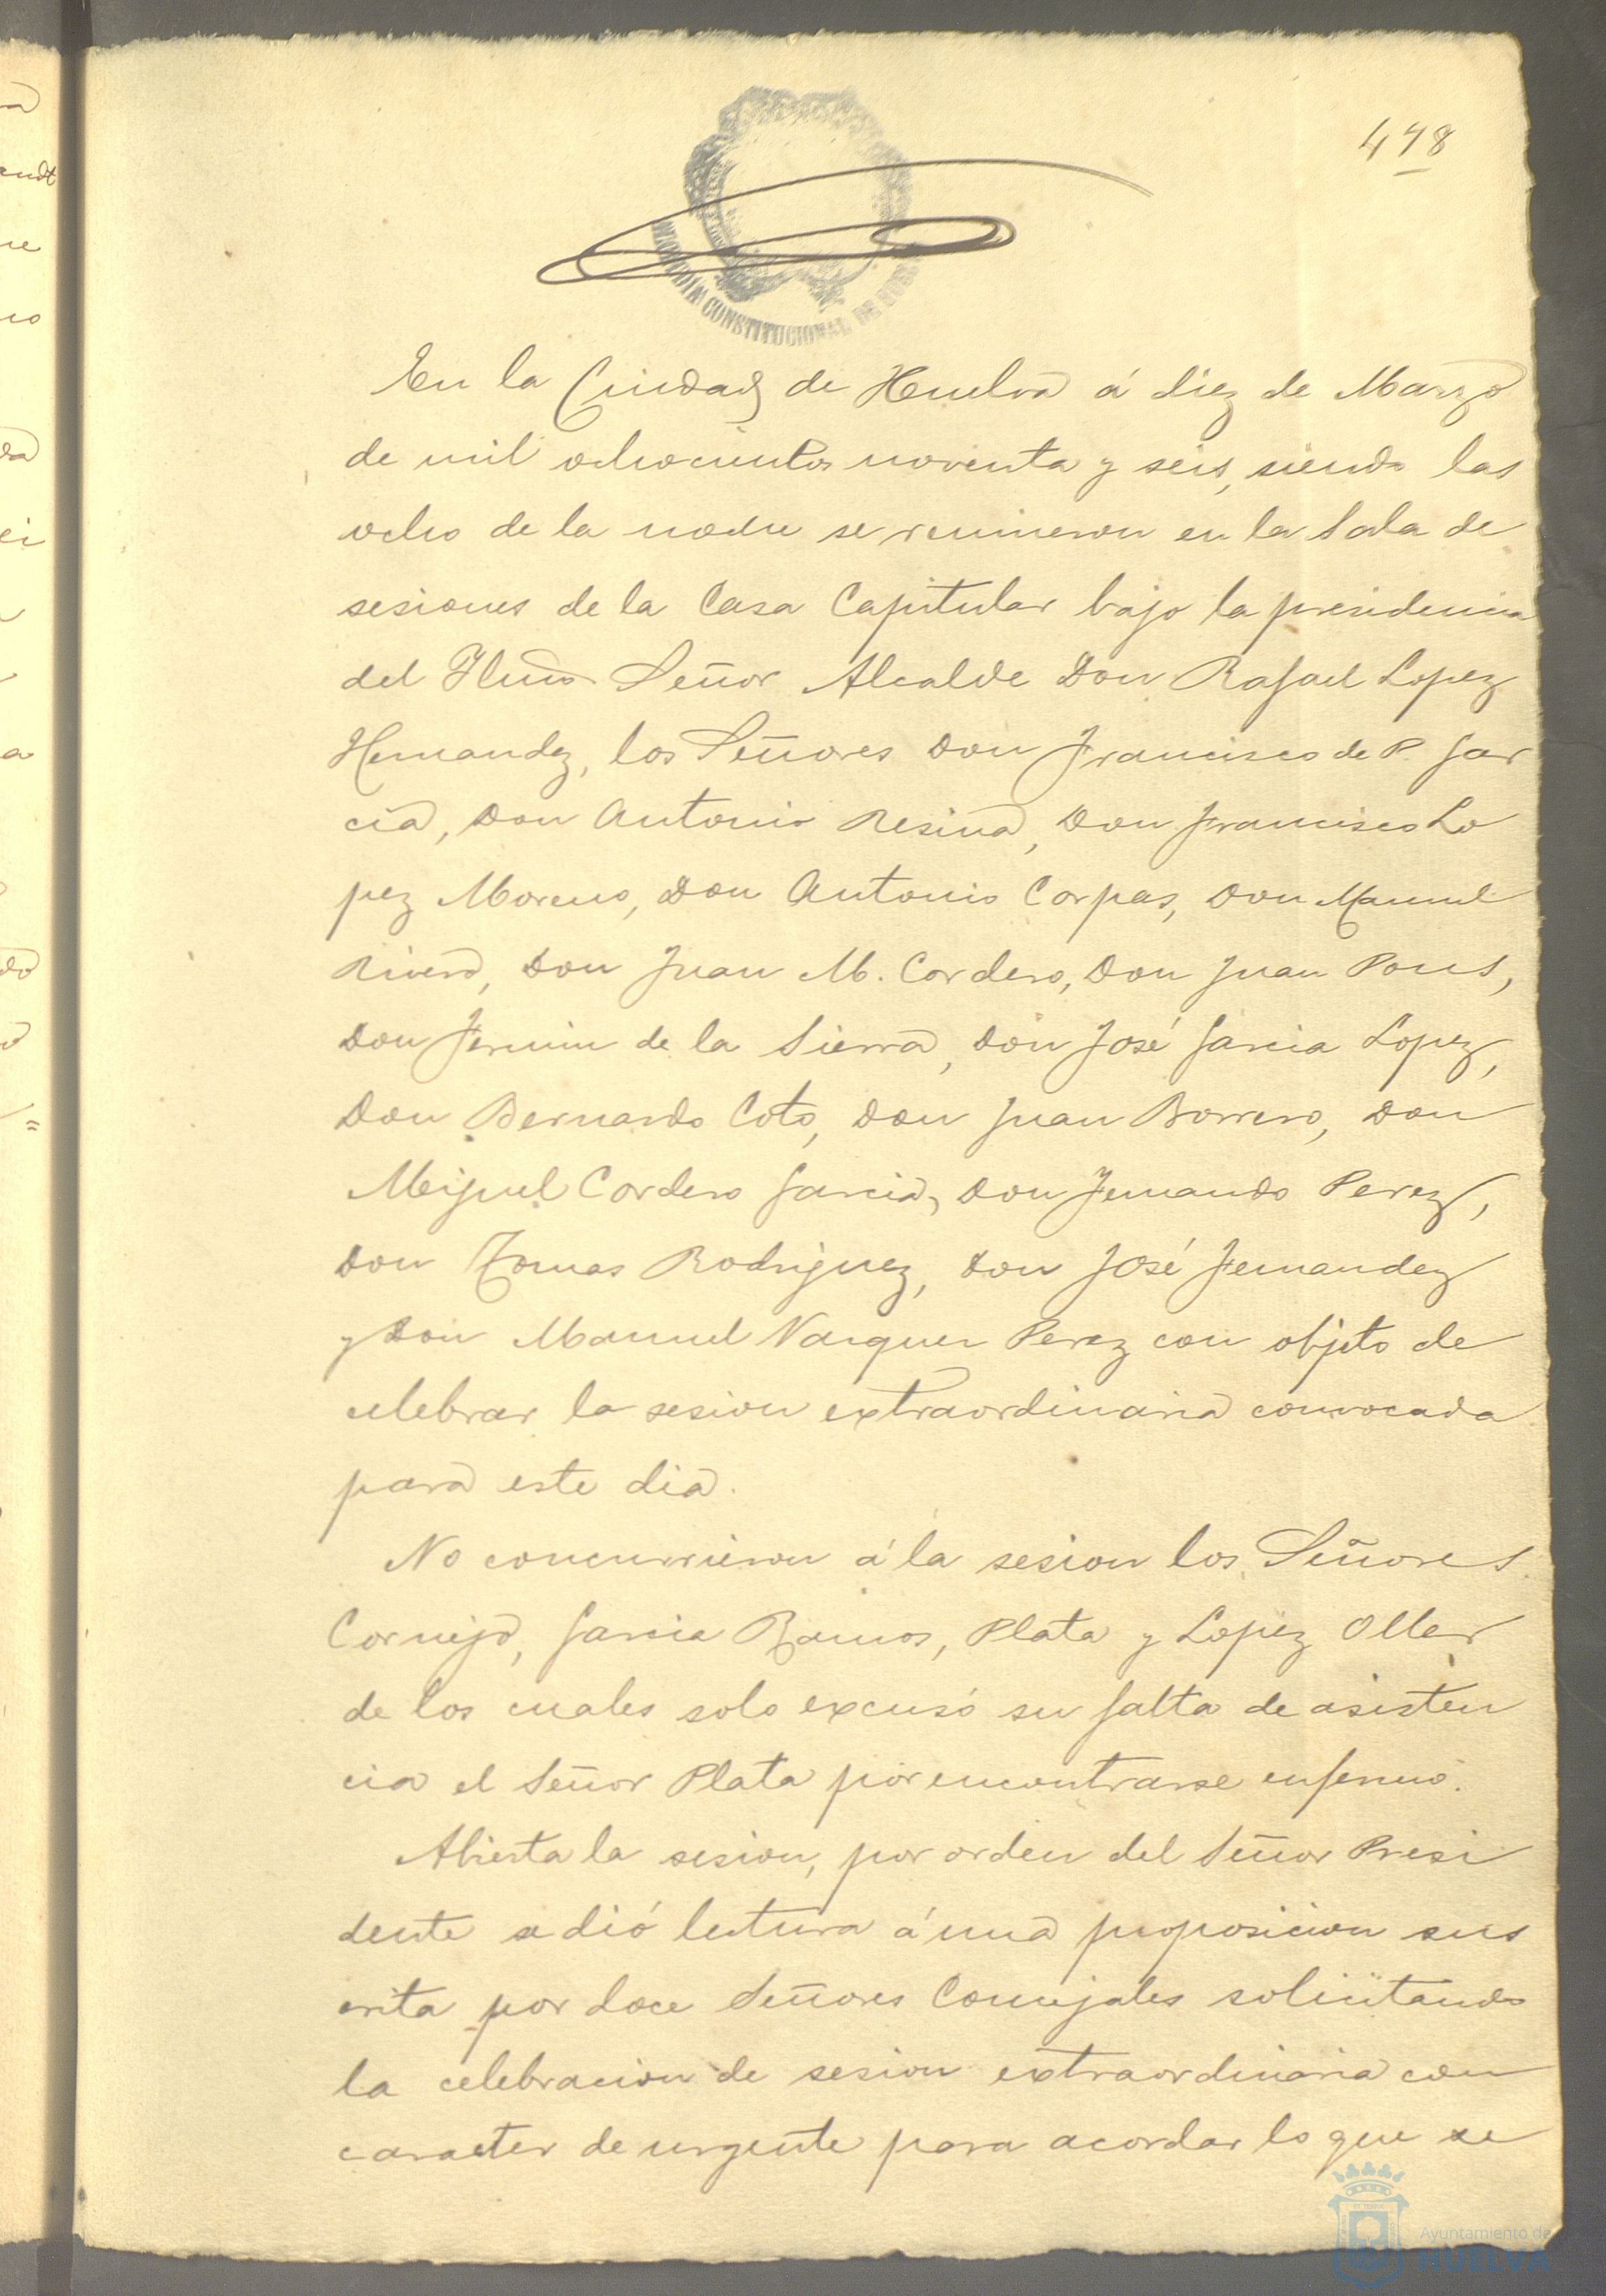 498
CONSTITUCIONAL DE
En la Ciudad de Huelva á diez de Marzo
de mil ochocientos noventa y seis, siendo las
ocho de la noche se reunieron en la Sala de
sesiones de la Casa Capitular bajo la presidencia
del Ilmo Señor Alcalde Don Rafael Lopez
Hernandez, los Señores Don Francisco de P. Gar
cia, Don Antonio Resina, Don Francisco Lo
pez Moreno, Don Antonio Corpas, Don Manuel
Rivero, Don Juan M. Cordero, Don Juan Pons,
Don Fermin de la Sierra, Don José Garcia Lopez,
Don Bernardo Coto, Don Juan Borrero, Don
Miguel Cordero Garcia, Don Fernando Perez,
Don Tomas Rodriguez, Don José Fernandez
y Don Manuel Vazquez Perez con objeto de
celebrar la sesion extraordinaria convocada
para este dia.
No concurrieron á la sesion los Señores
Cornejo, Garcia Ramos, Plata y Lopez Oller
de los cuales solo excusó su falta de asisten
cia el Señor Plata por encontrarse enfermo.
Abierta la sesion, por orden del Señor Presi
dente se dió lectura á una proposicion sus
crita por doce Señores Concejales solicitando
la celebracion de sesion extraordinaria con
caracter de urgente para acordar lo que se
Ayuntamiento de
HUELVA